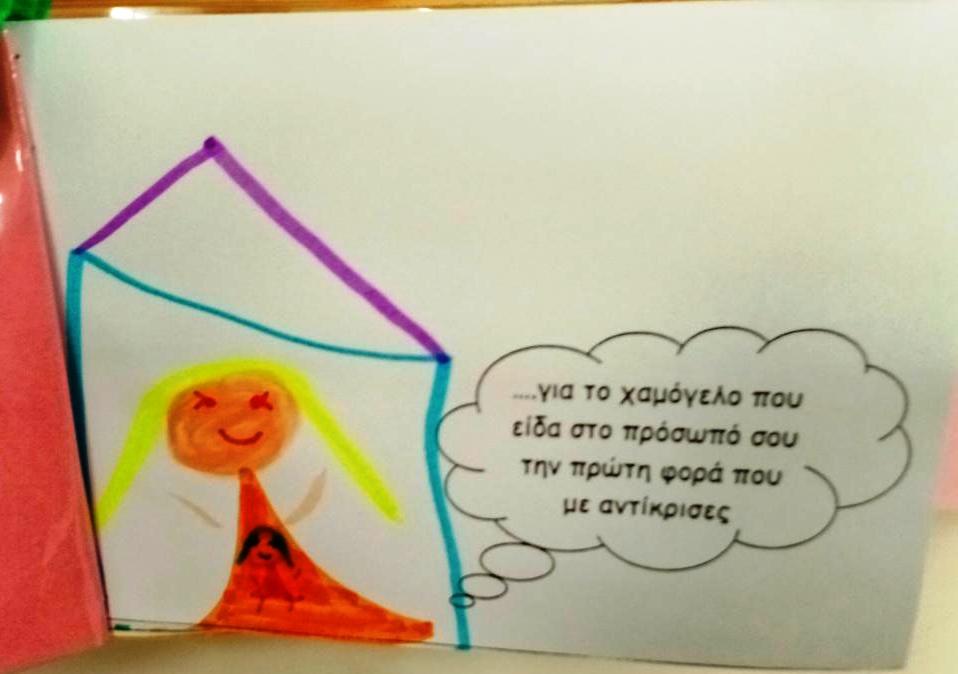 ....για το χαμόγελο που
είδα στο πρόσωπό σου
την πρώτη φορά που
με αντίκρισες